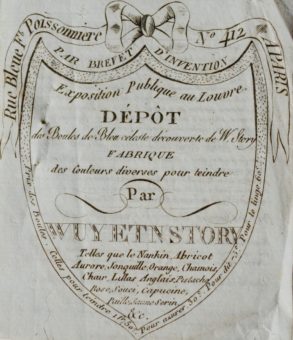 Rue Bleue Fg Poissonniere No 412 A PARIS
PAR BREVET D'INVENTION
Exposition Publique au Louvre
DÉPÔT
des Boules de Bleu celeste découverte de W. Story
FABRIQUE
des Couleurs diverses pour teindre
Par
WUY ET N STORY
Telles que le Nankin, Abricot
Aurore, Jonquille, Orange, Chamois,
Chair, Lillas Anglais, Pistache
Rose, Souci, Capucine,
Paille, Jaune Serin,
&c.
Prix des Boules
Celles pour teindre
Pour azurer 30s. Pour
Pour le linge